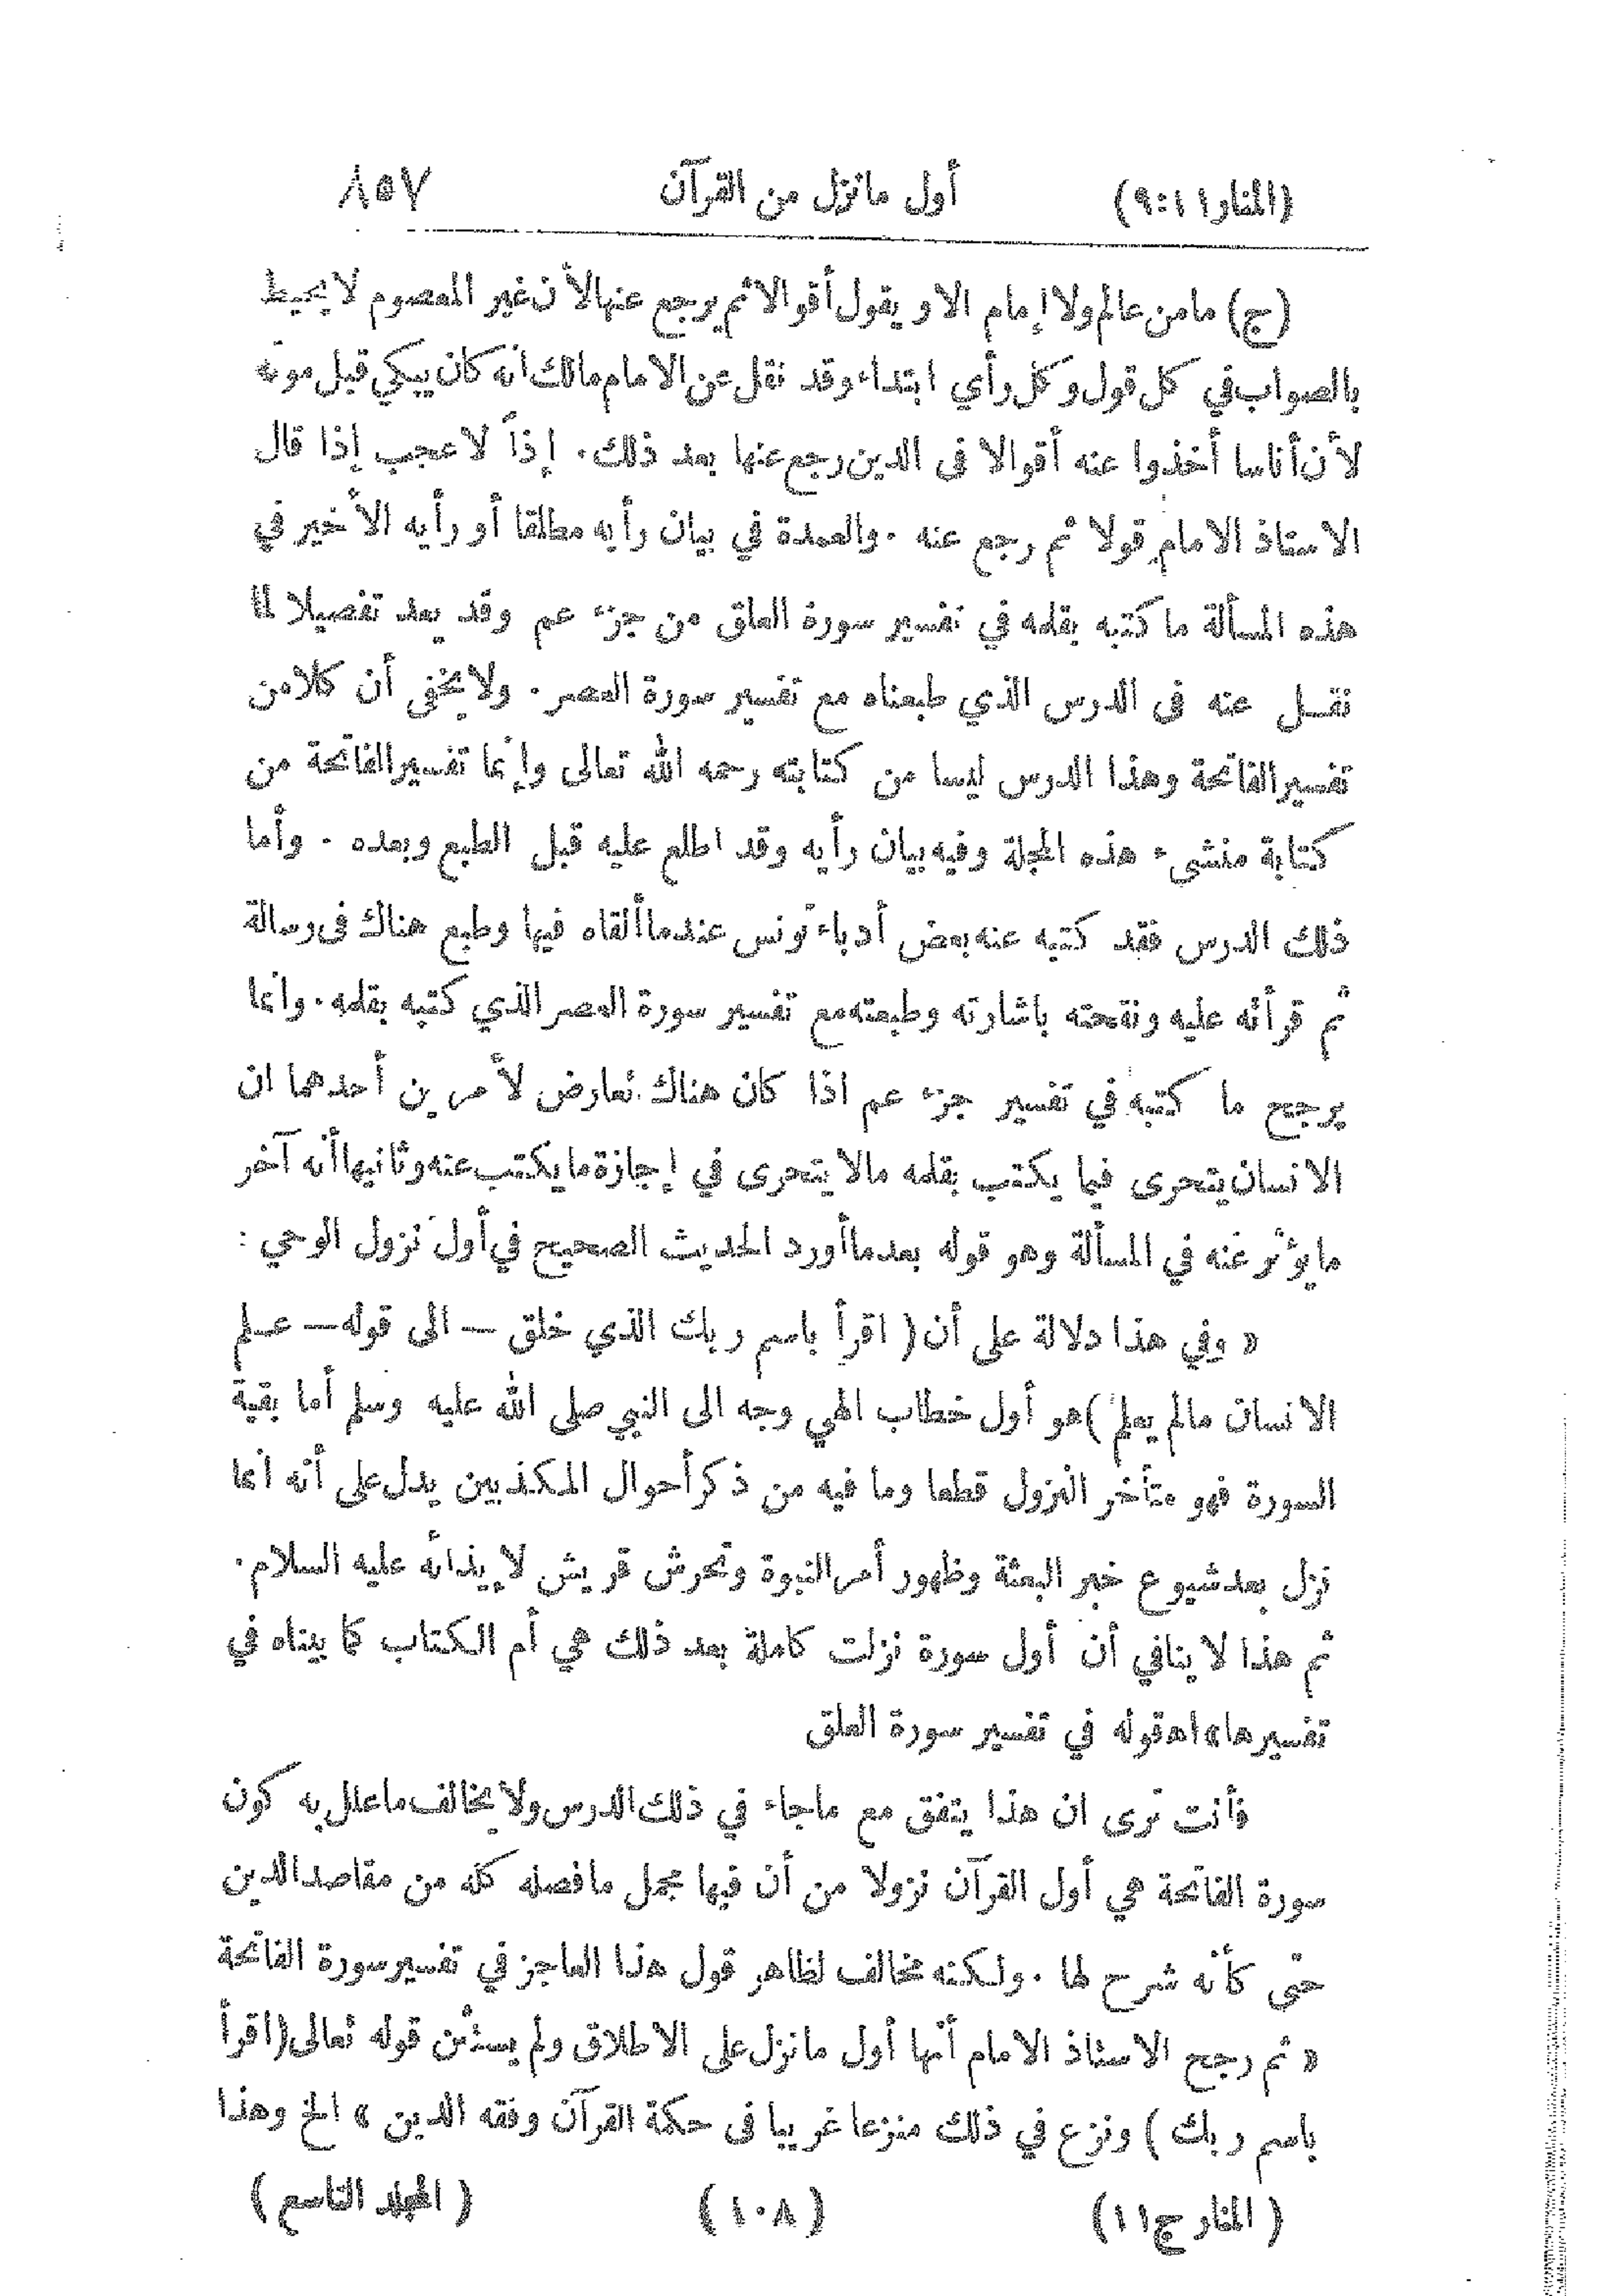 (المنار ١١:٩) أول ما نزل من القرآن ٨٥٧
(ج) ما من عالم ولا إمام الا ويقول أقوالا ثم يرجع عنها لأن غير المعصوم لا يحيط
بالصواب في كل قول وكل رأي ابتداء وقد نقل عن الامام مالك انه كان يبكي قبل موته
لأن أناسا أخذوا عنه أقوالا في الدين رجع عنها بعد ذلك . إذاً لا عجب إذا قال
الاستاذ الامام قولا ثم رجع عنه . والعمدة في بيان رأيه مطلقا أو رأيه الأخير في
هذه المسألة ما كتبه بقلمه في تفسير سورة العلق من جزء عم وقد يعد تفصيلا لما
نقل عنه في الدرس الذي طبعناه مع تفسير سورة العصر . ولا يخفى أن كلا من
تفسير الفاتحة وهذا الدرس ليسا من كتابته رحمه الله تعالى وإنما تفسير الفاتحة من
كتابة منشىء هذه المجلة وفيه بيان رأيه وقد اطلع عليه قبل الطبع وبعده . وأما
ذلك الدرس فقد كتبه عنه بعض أدباء تونس عندما ألقاه فيها وطبع هناك في رسالة
ثم قرأته عليه ونقحته باشارته وطبعته مع تفسير سورة العصر الذي كتبه بقلمه . وانما
يرجح ما كتبه في تفسير جزء عم اذا كان هناك تعارض لأمرين أحدهما ان
الانسان يتحرى فيما يكتب بقلمه مالا يتحرى في إجازة ما يكتب عنه وثانيها أنه آخر
ما يؤثر عنه في المسألة وهو قوله بعد ما أورد الحديث الصحيح في أول نزول الوحي :
« وفي هذا دلالة على أن ( اقرأ باسم ربك الذي خلق — الى قوله — علم
الانسان مالم يعلم ) هو أول خطاب الهي وجه الى النبي صلى الله عليه وسلم أما بقية
السورة فهو متأخر النزول قطعا وما فيه من ذكر أحوال المكذبين يدل على أنه انما
نزل بعد شيوع خبر البعثة وظهور أمر النبوة وتحرش قريش لإيذائه عليه السلام .
ثم هذا لا ينافي أن أول سورة نزلت كاملة بعد ذلك هي أم الكتاب كما بيناه في
تفسيرها » اه قوله في تفسير سورة العلق
فأنت ترى ان هذا يتفق مع ماجاء في ذلك الدرس ولا يخالف ما علل به كون
سورة الفاتحة هي أول القرآن نزولا من أن فيها مجمل ما فصله كله من مقاصد الدين
حتى كأنه شرح لها . ولكنه مخالف لظاهر قول هذا العاجز في تفسير سورة الفاتحة
« ثم رجح الاستاذ الامام أنها أول ما نزل على الاطلاق ولم يستثن قوله تعالى ( اقرأ
باسم ربك ) ونزع في ذلك منزعا غريبا في حكمة القرآن وفقه الدين » الخ وهذا
( المنار ج ١١ ) ( ١٠٨ ) ( المجلد التاسع )